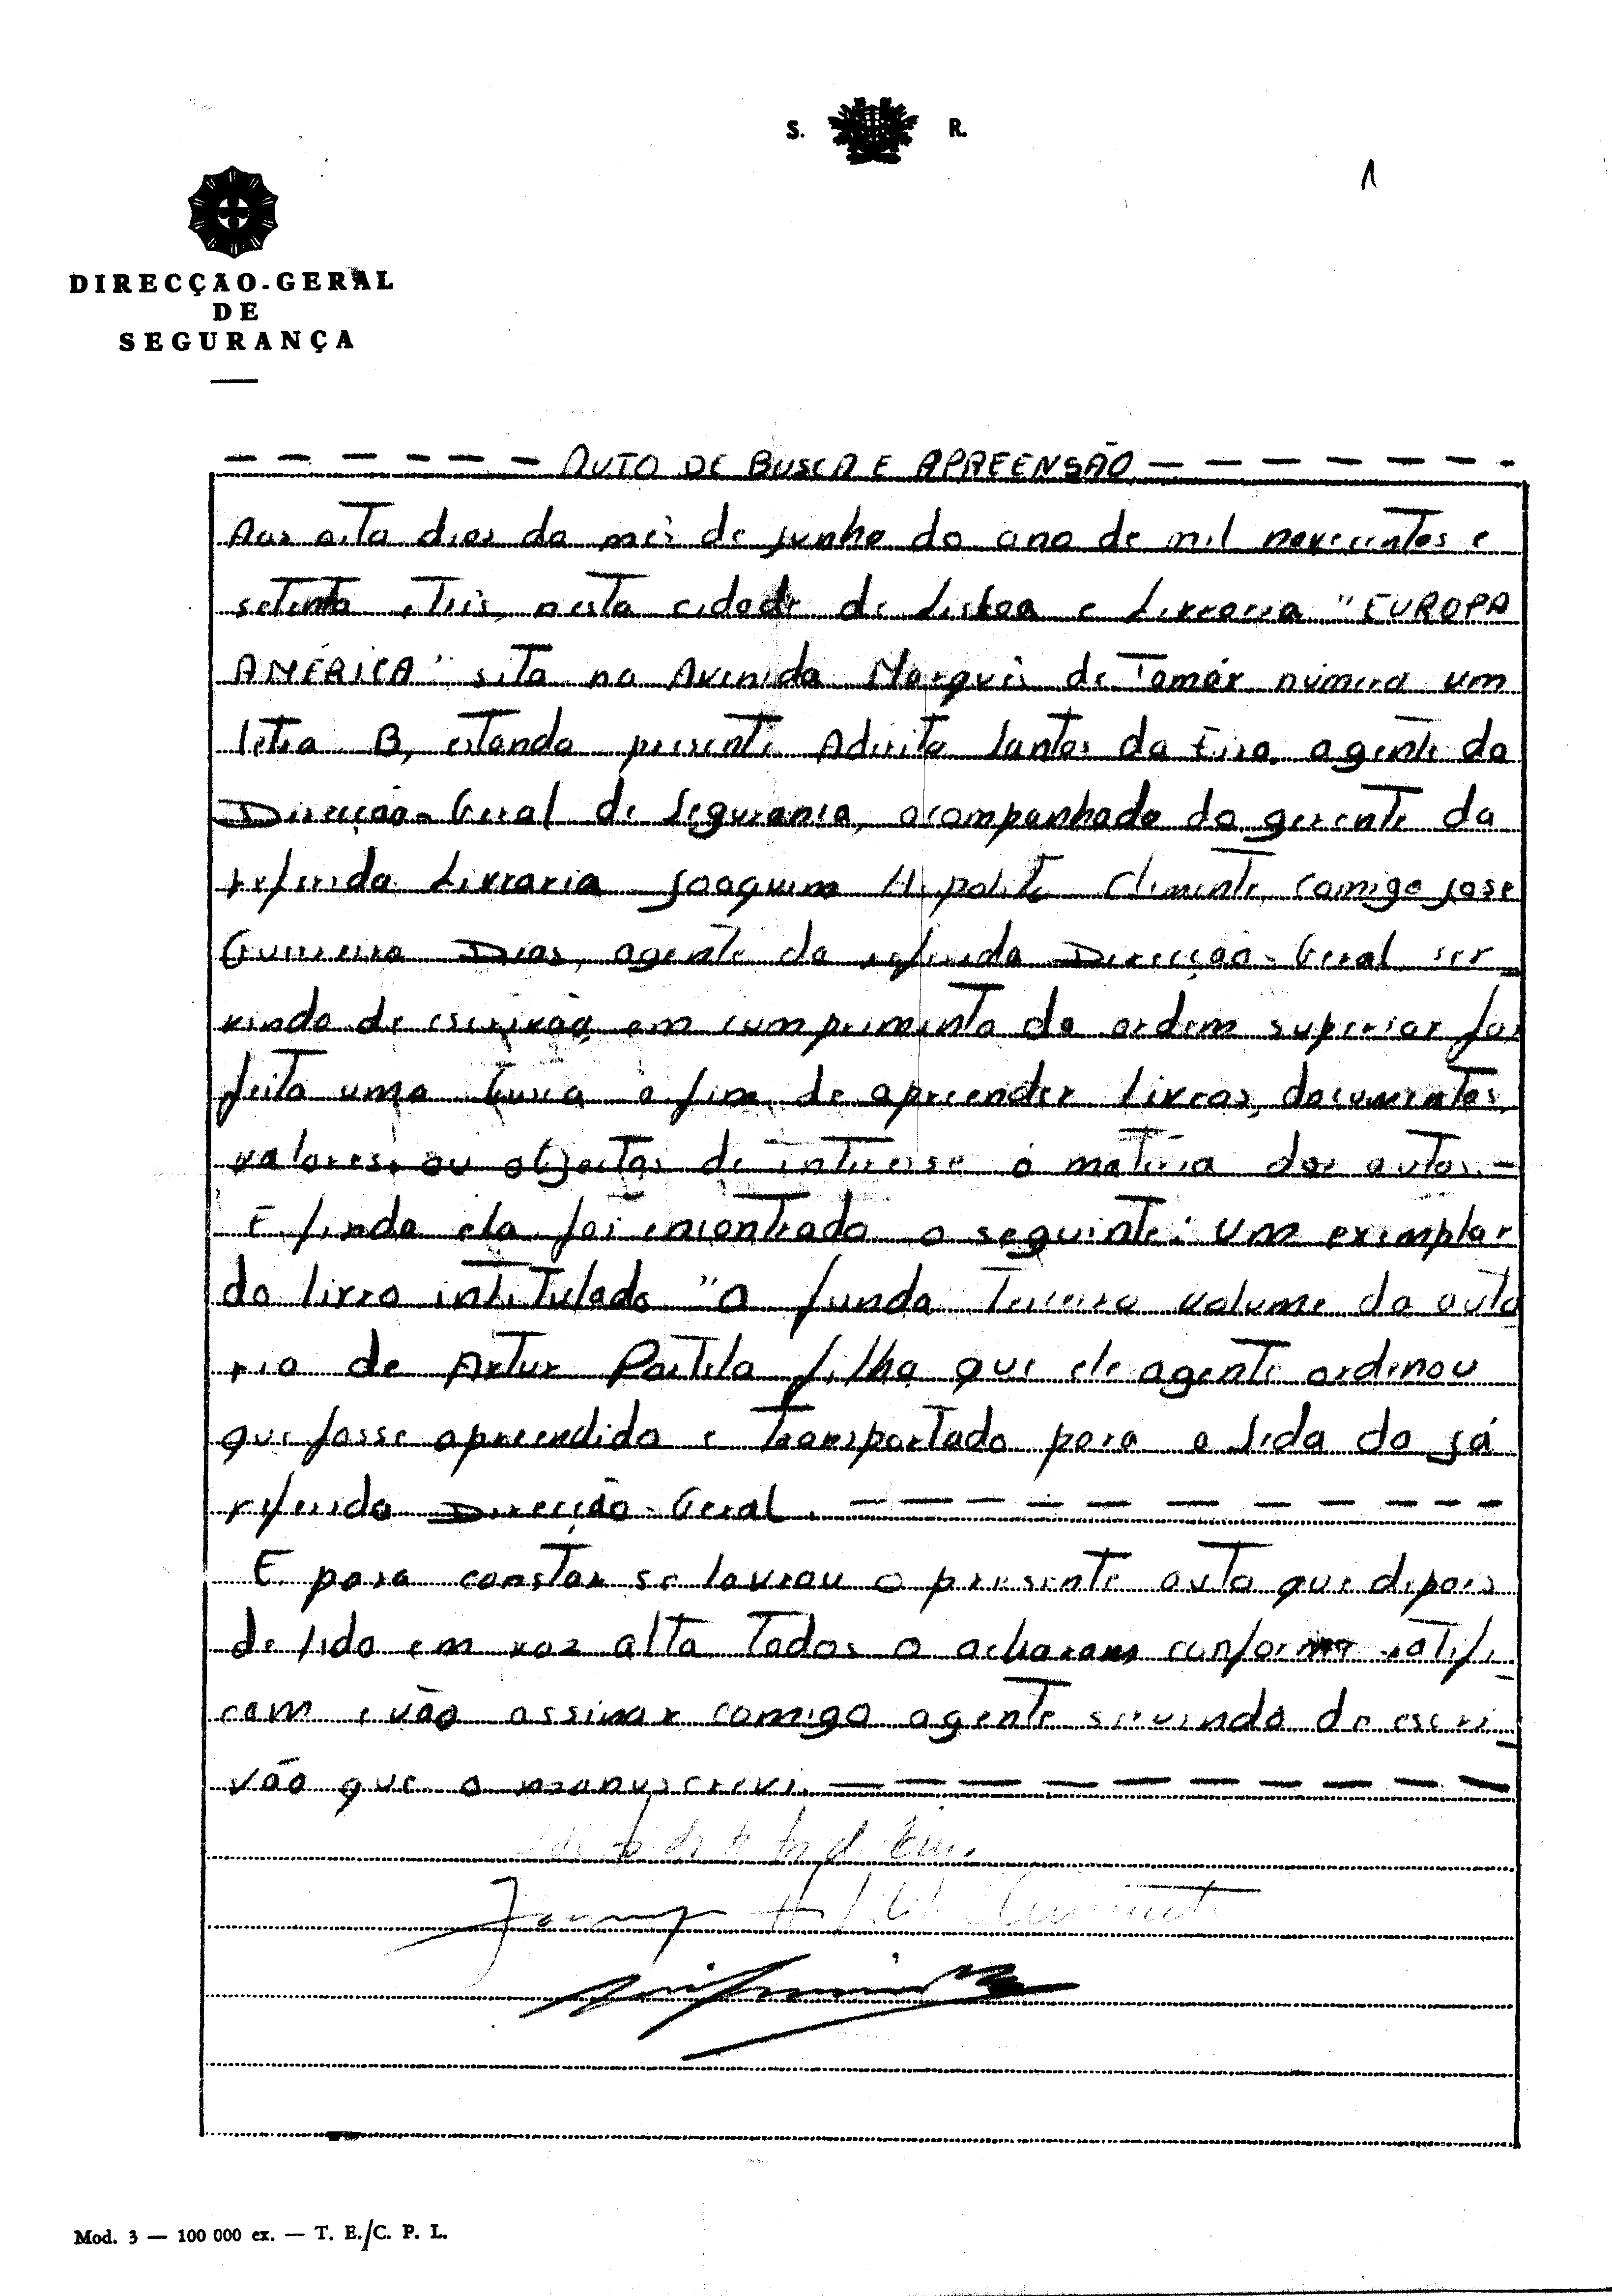 S. R.
1
DIRECÇÃO-GERAL
DE
SEGURANÇA
AUTO DE BUSCA E APREENSÃO
Aos oito dias do mês de junho do ano de mil novecentos e
setenta e três, nesta cidade de Lisboa e Livraria "EUROPA
AMÉRICA" sita na Avenida Marquês de Tomár número um
letra B, estando presente Adérito Santos da Eira, agente da
Direcção-Geral de Segurança, acompanhado do gerente da
referida Livraria Joaquim Hipolito Clemente, comigo José
Guerreiro Dias, agente da referida Direcção-Geral ser_
vindo de escrivão em cumprimento da ordem superior foi
feita uma busca a fim de apreender livros, documentos,
valores, ou objectos de interesse á matéria dos autos.—
E finda ela foi encontrado o seguinte: Um exemplar
do livro intitulado "O funda Terceiro volume da auto
ria de Artur Portela filho que ele agente ordenou
que fosse apreendido e transportado para a séda da já
referida Direcção-Geral.
E para constar se lavrou o presente auto que depois
de lido em voz alta todos o acharam conforme ratifi_
cam e vão assinar comigo agente servindo de escri_
vão que o manuscrevi.
Mod. 3 — 100 000 ex. — T. E./C. P. L.